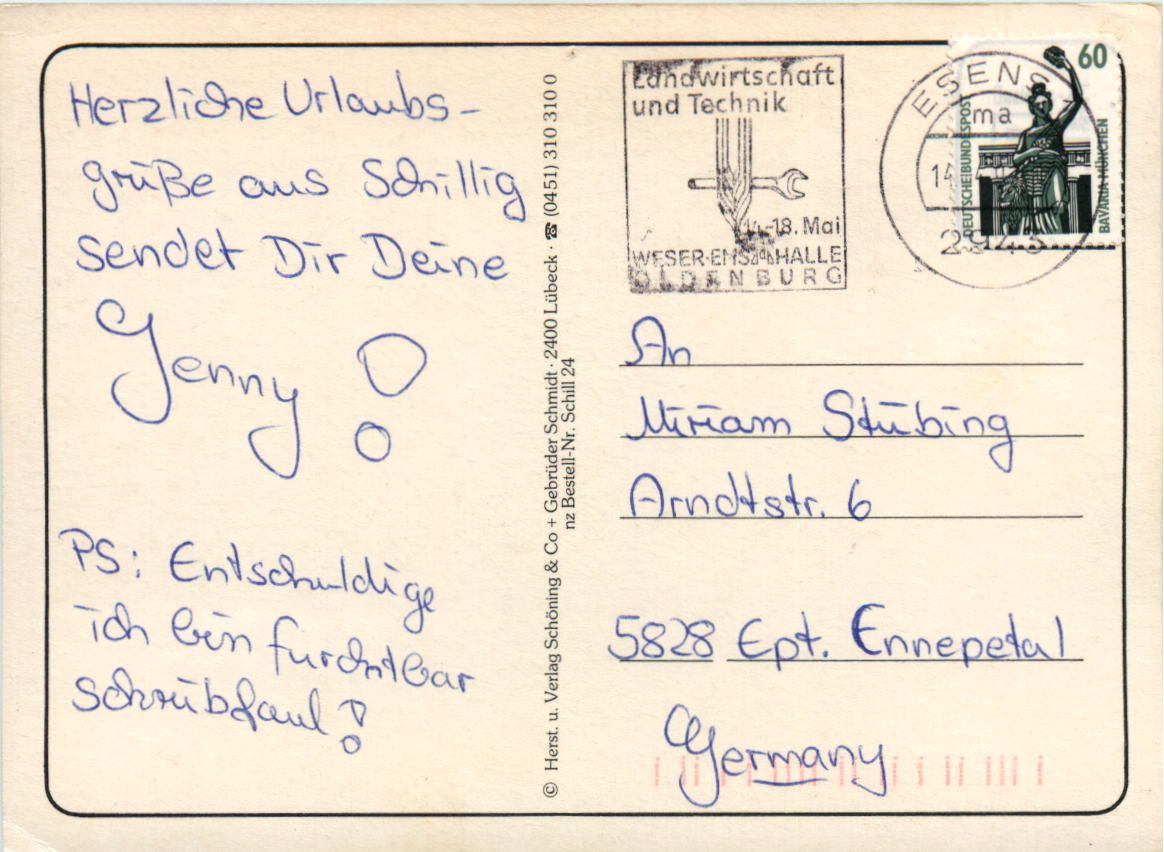 Herzliche Urlaubs-
grüße aus Schillig
sendet Dir Deine
Jenny!
PS: Entschuldige
ich bin furchtbar
schreibfaul!
© Herst. u. Verlag Schöning & Co + Gebrüder Schmidt · 2400 Lübeck · ☎ (0451) 310 310 0
nz Bestell-Nr. Schill 24
Landwirtschaft
und Technik
14.-18. Mai
WESER-EMS-HALLE
OLDENBURG
ESENS
ma
14
2943
60
DEUTSCHE BUNDESPOST
BAVARIA MÜNCHEN
An
Miriam Stübing
Arndtstr. 6
5828 Ept. Ennepetal
Germany